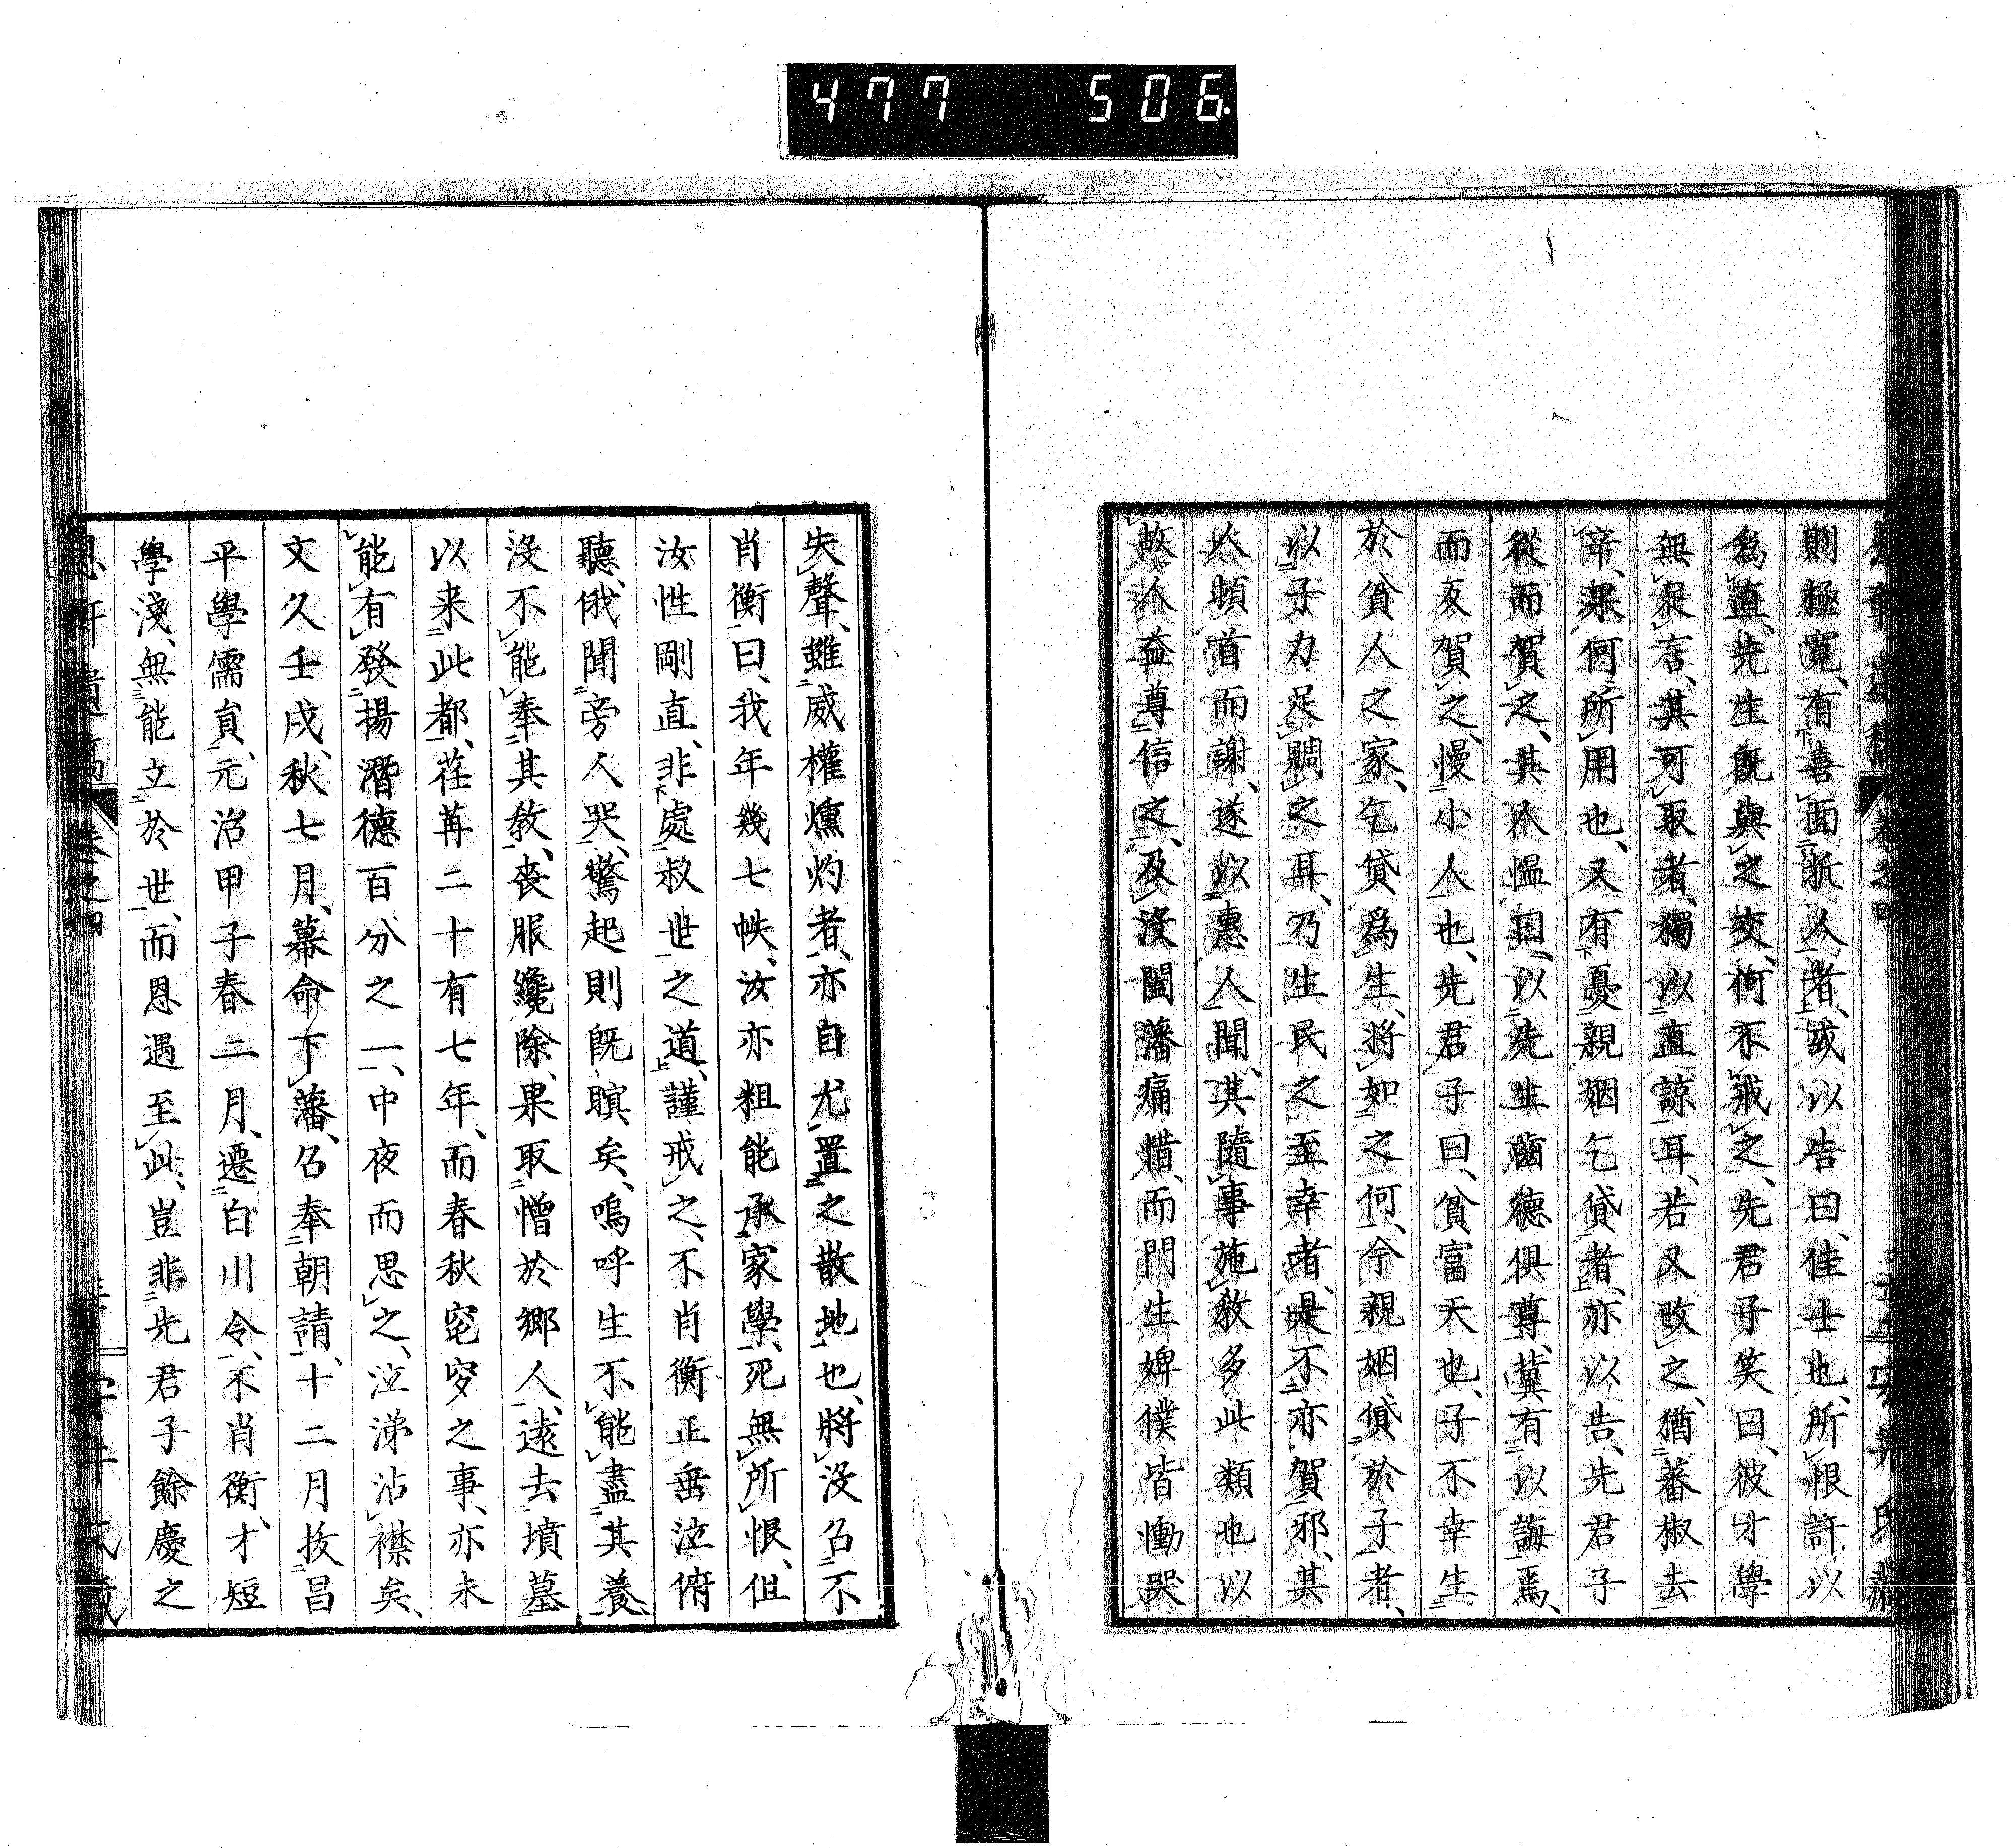 477 506
則極寛、有喜面折人者、或以告曰、佳士也、所恨訐以
為直、先生既與之交、何不戒之、先君子笑曰、彼才學
無泉言、其可取者、獨以直諒耳、若又改之、猶蕃椒去
辛、果何所用也、又有憂親姻乞貸者、亦以告、先君子
從而賀之、其人慍曰、以先生齒德俱尊、冀有以誨焉、
而反賀之、慢小人也、先君子曰、貧富天也、子不幸生
於貧人之家、乞貸為生、將如之何、今親姻貸於子者、
以子力足賙之耳、乃生民之至幸者、是不亦賀邪、其
人頓首而謝、遂以惠人聞、其隨事施教多此類也、以
故人益尊信之、及沒闔藩痛惜、而門生婢僕皆慟哭
失聲、雖威權燻灼者、亦自尤置之散地也、將沒召不
肖衡曰、我年幾七帙、汝亦粗能承家學、死無所恨、但
汝性剛直、非處叔世之道、謹戒之、不肖衡正垂泣俯
聽、俄聞旁人哭、驚起則既瞑矣、嗚呼生不能盡其養、
沒不能奉其教、喪服纔除、果取憎於鄉人、遠去墳墓
以来此都、荏苒二十有七年、而春秋窀穸之事、亦未
能有發揚潛德百分之一、中夜而思之、泣涕沾襟矣、
文久壬戌、秋七月、幕命下藩、召奉朝請、十二月抜昌
平學儒員、元治甲子春二月、遷白川令、不肖衡、才短
學淺、無能立於世、而恩遇至此、豈非先君子餘慶之
卷之四